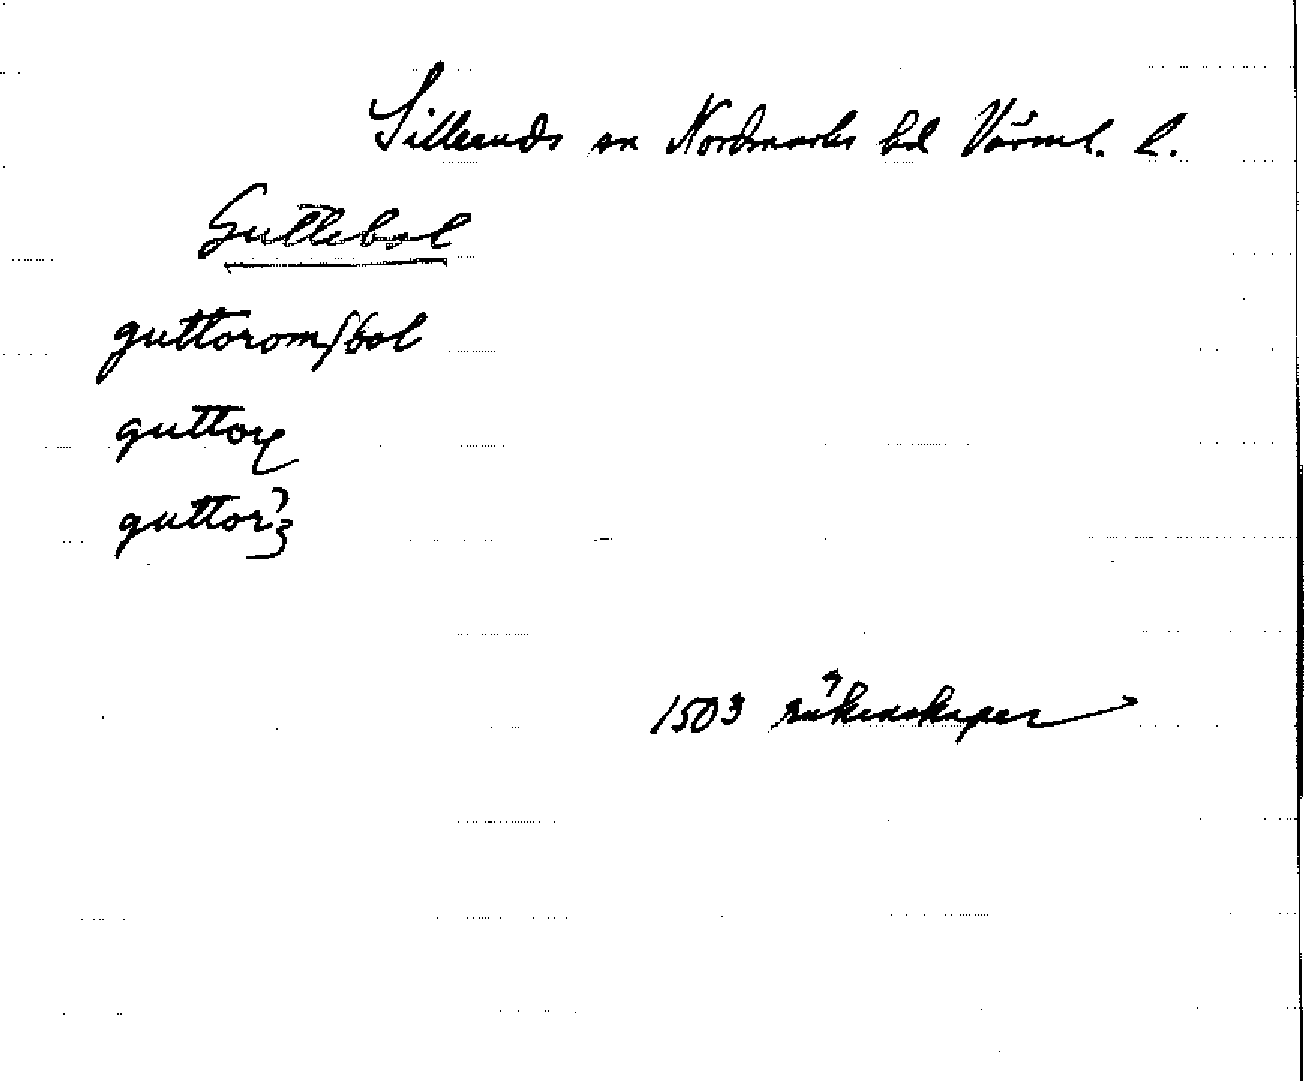 Silleruds sn Nordmarks hd Värml. l.
Guttebol
guttoromſbol
guttor
guttor
1503 räkenskaper